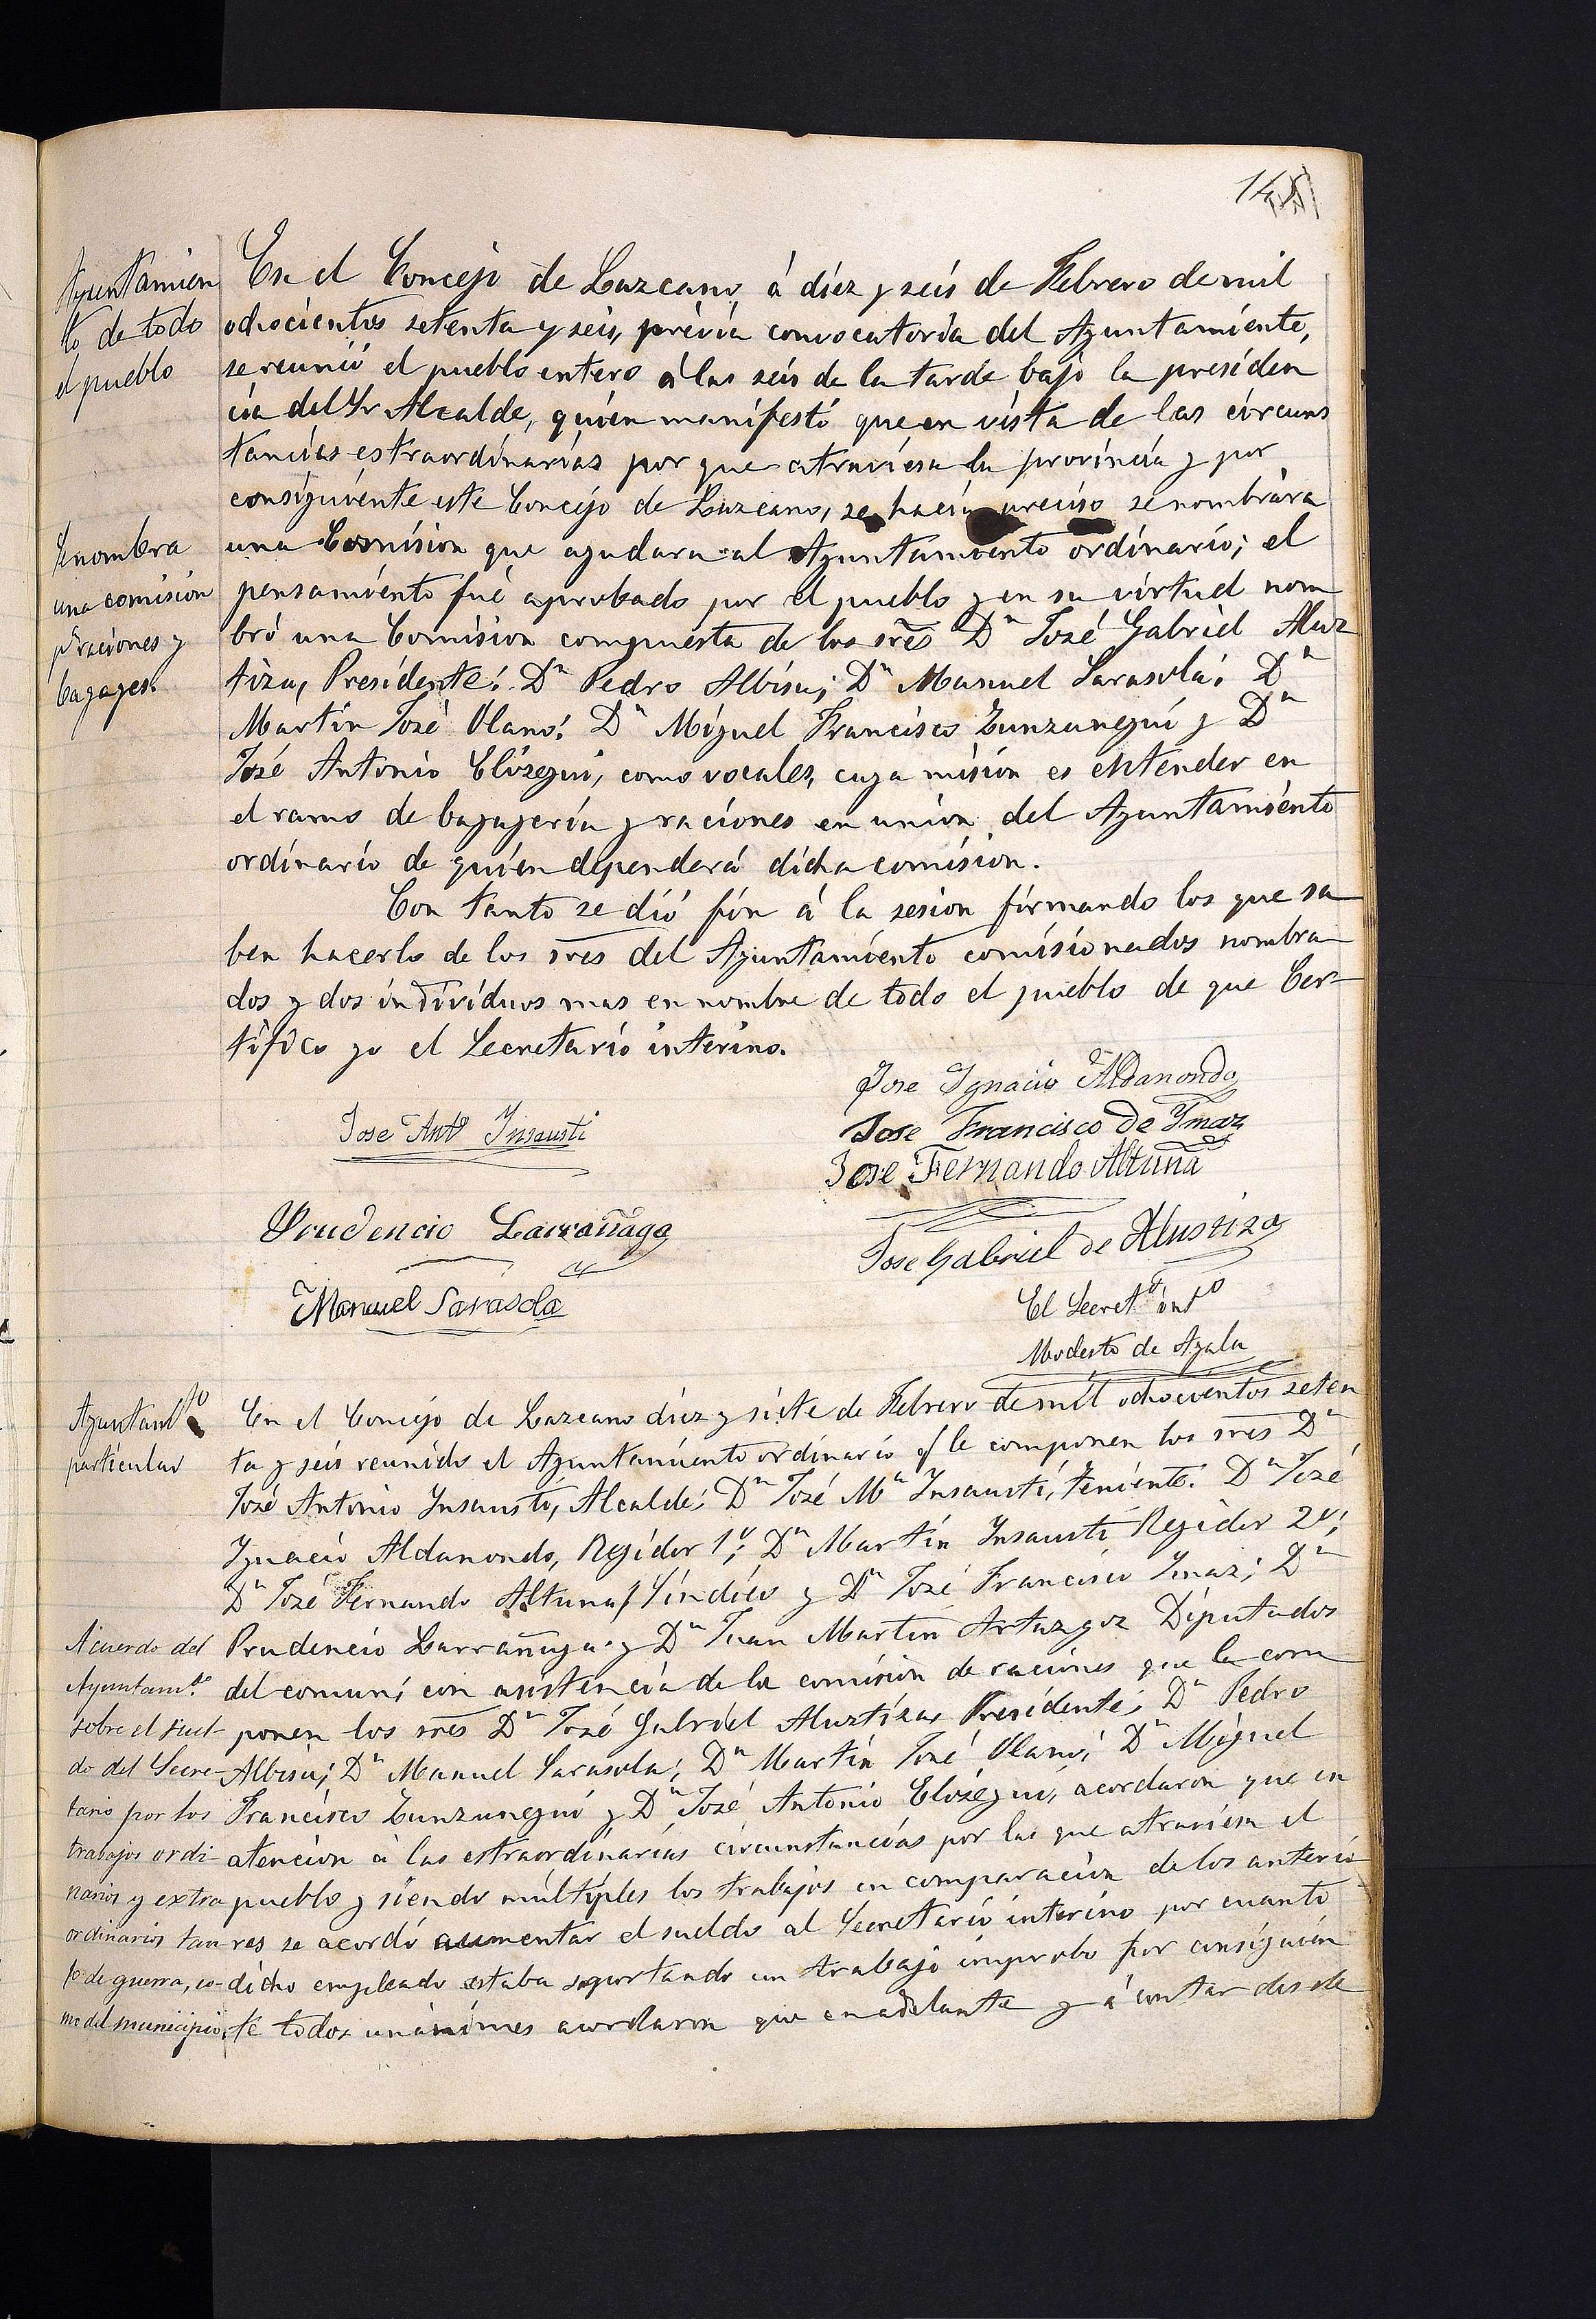 Ayuntamien
to de todo
el pueblo
En el Concejo de Lazcano, á diez y seis de Febrero de mil
ochocientos setenta y seis, prévia convocatoria del Ayuntamiento,
se reunió el pueblo entero á las seis de la tarde bajo la presiden
cia del Sr Alcalde, quien manifestó que en vista de las circuns
tancias estraordinarias por que atraviesa la provincia y por
consiguiente este Concejo de Lazcano, se hacia preciso se nombrára
Se nombra
una comision
pª raciones y
bagages.
una Comision que ayudara al Ayuntamiento ordinario; el
pensamiento fué aprobado por el pueblo y en su virtud nom
bró una Comision compuesta de los sres Dn José Gabriel Aluz
tiza, Presidente; Dn Pedro Albisu; Dn Manuel Sarasola; Dn
Martin José Olano; Dn Miguel Francisco Zunzunegui y Dn
José Antonio Elósegui, como vocales, cuya mision es entender en
el ramo de bagajeria y raciones en union del Ayuntamiento
ordinario de quien dependerá dicha comision.
Con tanto se dió fin á la sesion firmando los que sa
ben hacerlo de los sres del Ayuntamiento comisionados nombra
dos y dos individuos mas en nombre de todo el pueblo de que Cer-
tifico yo el Secretario interino.
Jose Ignacio Aldanondo
Jose Anto Insausti
Jose Francisco de Ymaz
Jose Fernando Altuna
Prudencio Larrañaga
Jose Gabriel de Alustiza
Manuel Sarasola
El Secreto into
Modesto de Ayala
Ayuntamto
particular
En el Concejo de Lazcano diez y siete de Febrero de mil ochocientos seten
ta y seis reunido el Ayuntamiento ordinario q le componen los sres Dn
José Antonio Insausti, Alcalde; Dn José Mª Insausti, Teniente; Dn José
Ignacio Aldanondo, Regidor 1º; Dn Martin Insausti Regidor 2º;
Dn José Fernando Altuna, Síndico y Dn José Francisco Imaz; Dn
Prudencio Larrañaga y Dn Juan Martin Artazcoz Diputados
Acuerdo del
Ayuntamto
sobre el suel-
do del Secre-
tario por los
trabajos ordi
narios y extra
ordinarios tan
to de guerra, co-
mo del municipio.
del comun; con asistencia de la comision de raciones que la com
ponen los sres Dn José Gabriel Aluztiza, Presidente; Dn Pedro
Albisu; Dn Manuel Sarasola; Dn Martin José Olano; Dn Miguel
Francisco Zunzunegui y Dn José Antonio Elósegui, acordaron que en
atencion á las estraordinarias circunstancias por las que atraviesa el
pueblo y siendo múltiples los trabajos en comparacion de los anterio
res se acordó aumentar el sueldo al Secretario interino por cuanto
dicho empleado estaba soportando un trabajo improbo por consiguien
te todos unánimes acordaron que en adelante y á contar desde